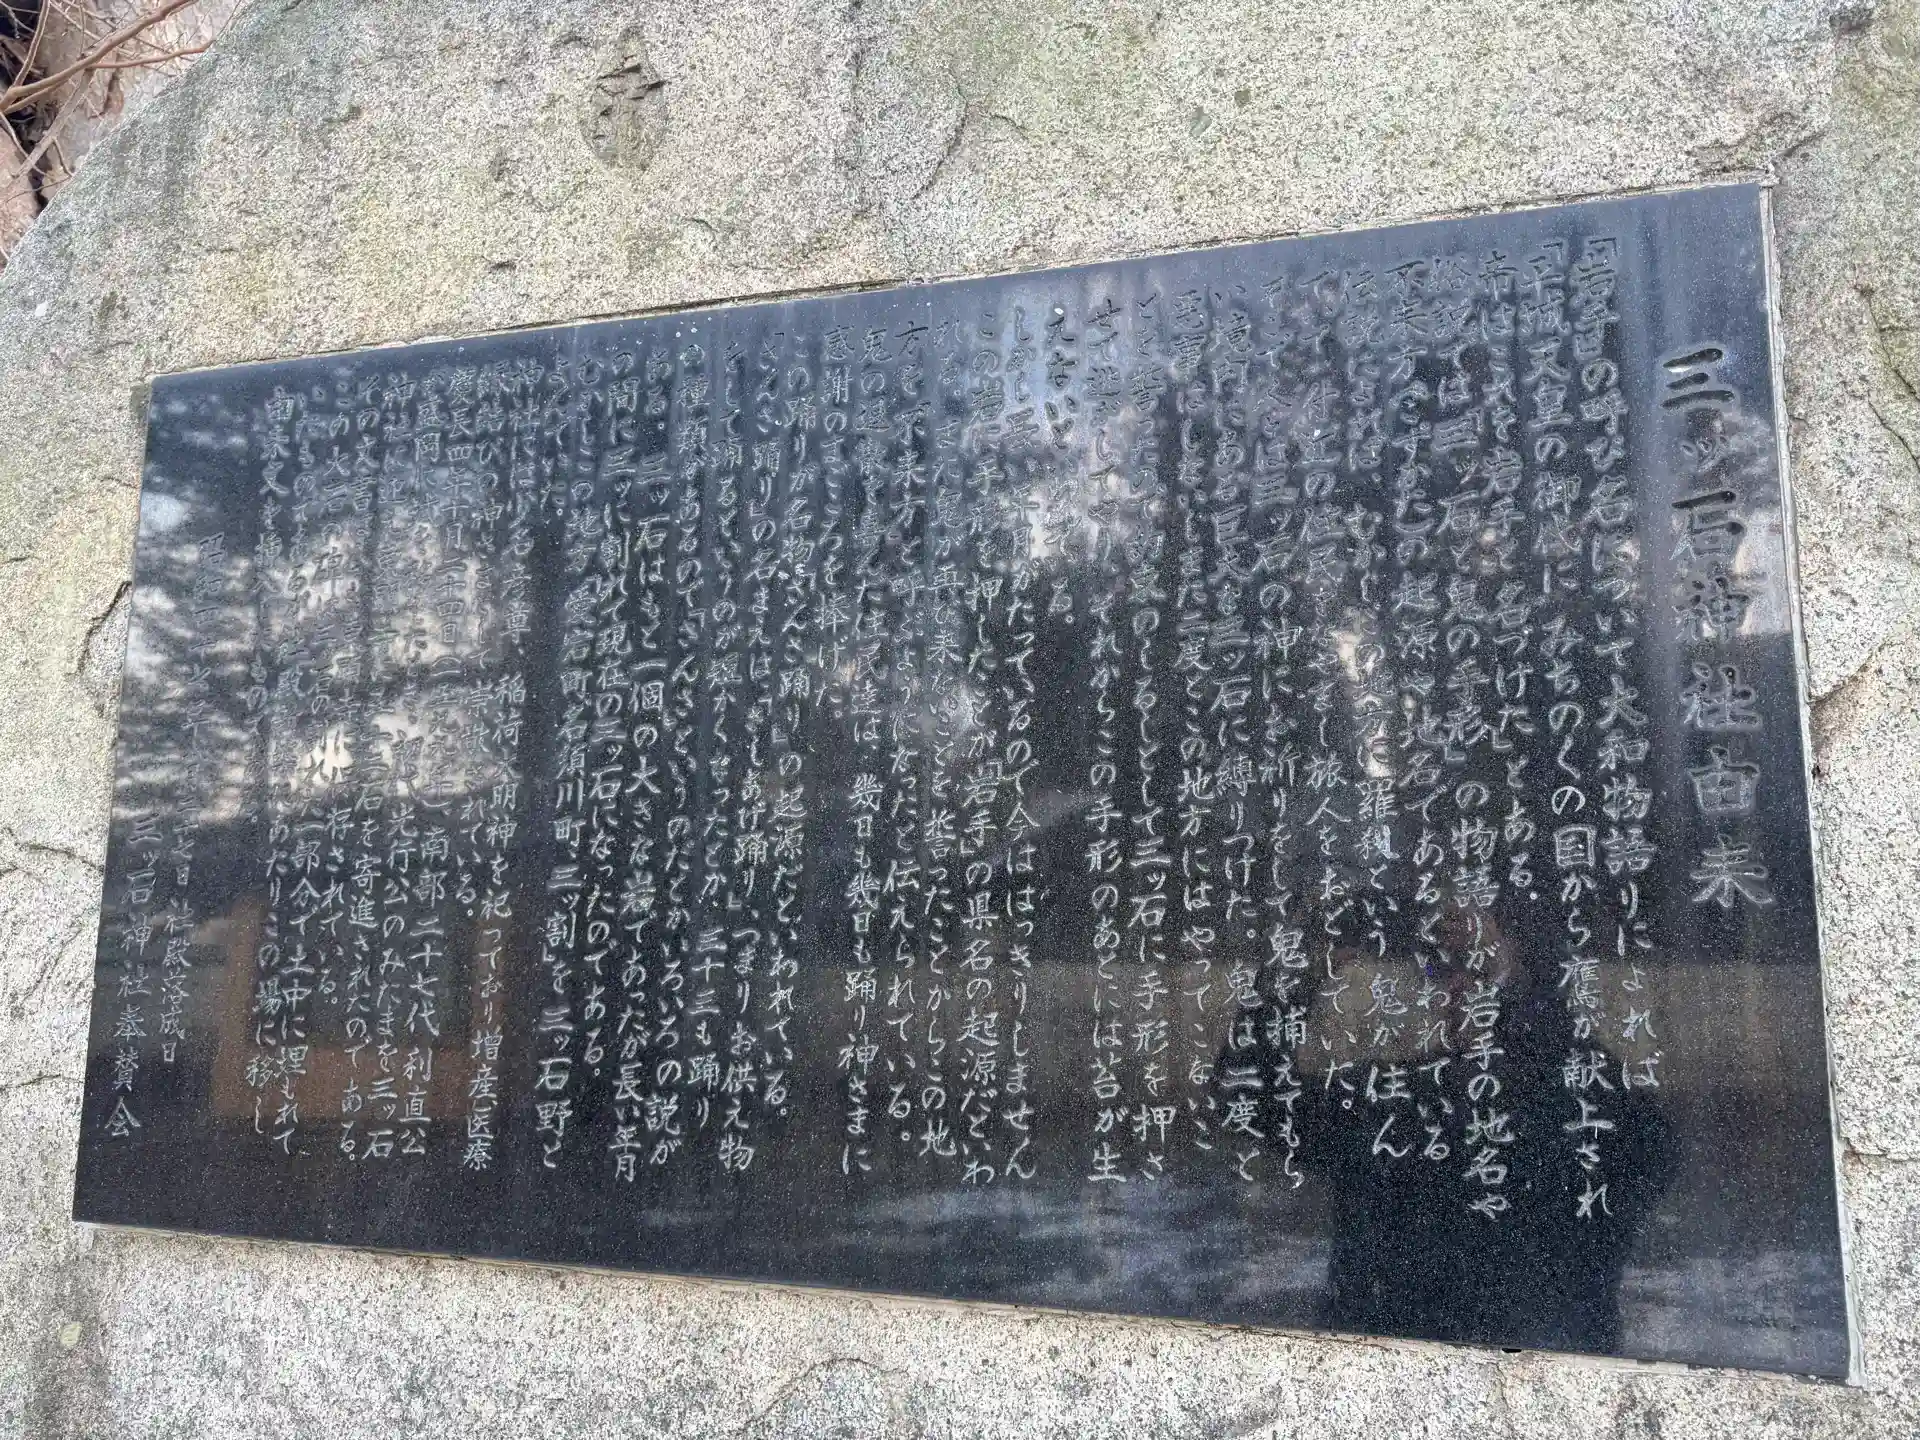 三ッ石神社由来
「岩手」の呼び名について大和物語りによれば
「平城天皇の御代に、みちのくの国から鷹が献上され
帝はこれを岩手と名づけた」とある。
俗説では「三ッ石と鬼の手形」の物語りが岩手の地名や
不来方(こずかた)の起源や地名であるといわれている
伝説によれば、むかしこの地方に羅刹という鬼が住ん
でいて付近の住民をなやまし旅人をおどしていた。
そこで人々は三ッ石の神にお祈りをして鬼を捕えてもら
い境内にある巨大な三ッ石に縛りつけた。鬼は二度と
悪事はしないしまた二度とこの地方にはやってこないこ
とを誓ったので約束のしるしとして三ッ石に手形を押さ
せて逃がしてやりそれからこの手形のあとには苔が生
えないといわれている。
しかし長い年月がたっているので今ははっきりしません
この岩に手形を押したことが「岩手」の県名の起源だといわ
れる。また鬼が再び来ないことを誓ったことからこの地
方を不来方と呼ぶようになったと伝えられている。
鬼の退散を喜んだ住民達は、幾日も幾日も踊り神さまに
感謝のまごころを捧げた。
この踊りが名物「さんさ踊り」の起源だといわれている。
「さんさ踊り」の名まえは「さしあげ踊り」、つまりお供え物
をして踊るというのが短かくなったとか、三十三も踊り
の種類があるので「さんさ」というのだとかいろいろの説が
ある。三ッ石はもと一個の大きな岩であったが長い年月
の間に三ッに割れて現在の三ッ石になったのである。
むかしこの地方(愛宕町、名須川町、三ッ割)を三ッ石野と
よんでいた。
神社には少名彦尊、稲荷大明神を祀っており増産、医療
縁結びの神さまとして崇敬されている。
慶長四年十月二十四日(一五九九年)、南部二十七代利直公
が盛岡に城を 光行公のみたまを三ッ石
神社に 三石を寄進されたのである。
その文書は 存されている。
この大岩の 三ッ石の 一部分で土中に埋もれて
いたものであるが社殿 あたりこの場に移し
由来文を挿入したものである。
昭和四十七年 月二十七日 社殿落成日
三ッ石神社奉賛会